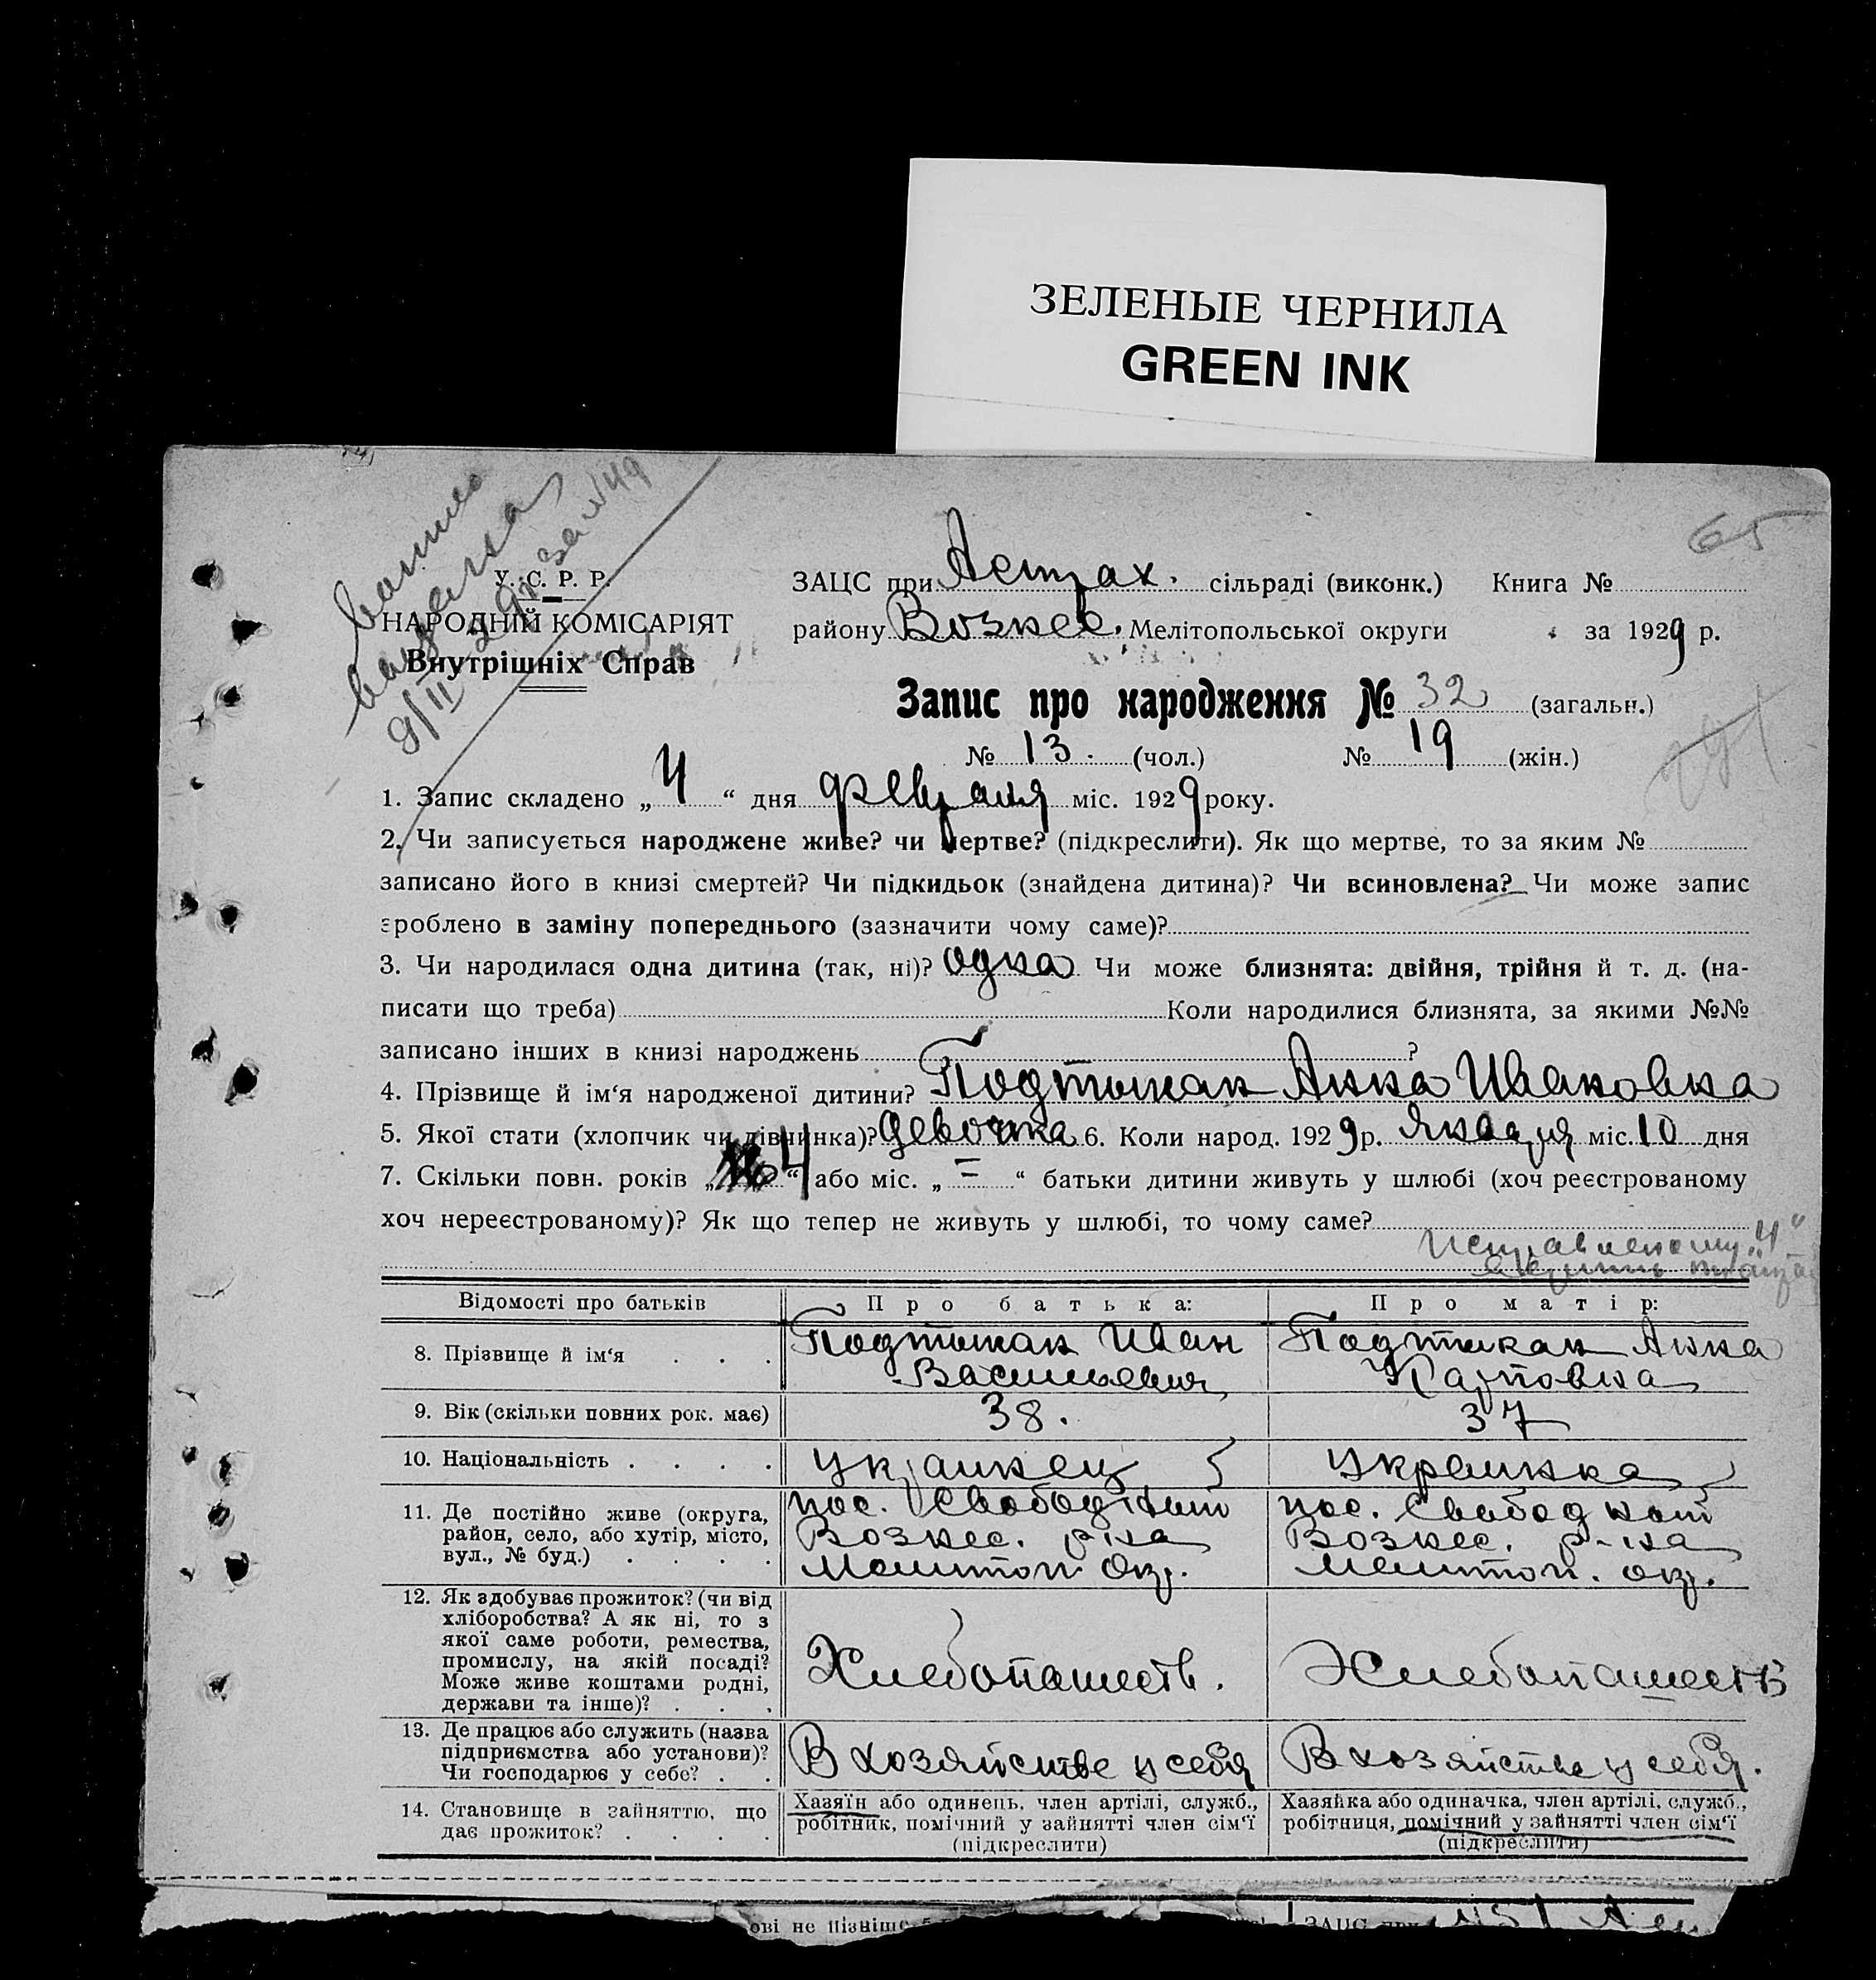 ЗЕЛЕНЫЕ ЧЕРНИЛА
GREEN INK
65
У. С. Р. Р.
НАРОДНІЙ КОМІСАРІЯТ
Внутрішніх Справ
9/II 29 за №49
ЗАЦС при Астрах. сільраді (виконк.) Книга №
району Вознес. Мелітопольської округи за 1929 р.
Запис про народження № 32 (загальн.)
№ 13. (чол.) № 19 (жін.)
1. Запис складено „4“ дня февраля міс. 1929 року.
2. Чи записується народжене живе? чи мертве? (підкреслити). Як що мертве, то за яким №
записано його в книзі смертей? Чи підкидьок (знайдена дитина)? Чи всиновлена? Чи може запис
зроблено в заміну попереднього (зазначити чому саме)?
3. Чи народилася одна дитина (так, ні)? одна Чи може близнята: двійня, трійня й т. д. (на-
писати що треба) Коли народилися близнята, за якими №№
записано інших в книзі народжень ?
4. Прізвище й ім‘я народженої дитини? Подтыкан Анна Ивановна
5. Якої стати (хлопчик чи дівчинка)? девочка 6. Коли народ. 1929 р. Января міс. 10 дня
7. Скільки повн. років „ 4“ або міс. „ = “ батьки дитини живуть у шлюбі (хоч реєстрованому
хоч нереєстрованому)? Як що тепер не живуть у шлюбі, то чому саме?
Исправленому „4“
Відомості про батьків Про батька: Про матір:
8. Прізвище й ім‘я . . . Подтыкан Иван Васильевич Подтыкан Анна Карповна
9. Вік (скільки повних рок. має) 38. 37
10. Національність . . . . Украинец Украинка
11. Де постійно живе (округа,
район, село, або хутір, місто,
вул., № буд.) . . . .
пос. Свободный
Вознес. р-на
Мелитоп. Окр.
пос. Свободный
Вознес. р-на
Мелитоп. окр.
12. Як здобуває прожиток? (чи від
хліборобства? А як ні, то з
якої саме роботи, ремества,
промислу, на якій посаді?
Може живе коштами родні,
держави та інше)? . . .
Хлебопашеств.
Хлебопашеств
13. Де працює або служить (назва
підприємства або установи)?
Чи господарює у себе? . .
В хозяйстве у себя
В хозяйстве у себя.
14. Становище в зайняттю, що
дає прожиток? . . . .
Хазяїн або одинець, член артілі, служб.,
робітник, помічний у зайнятті член сім‘ї
(підкреслити)
Хазяйка або одиначка, член артілі, служб.,
робітниця, помічний у зайнятті член сім‘ї
(підкреслити)
ові не пізніше
ЗАЦС при